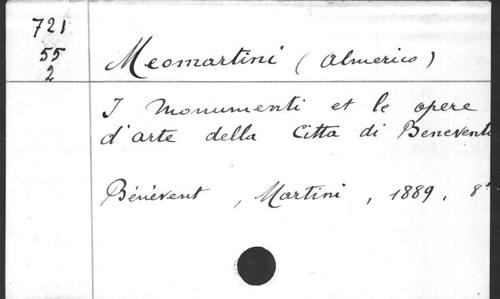 721
55
2
Meomartini (Almerico)
I Monumenti et le opere
d'arte della Citta di Benevento
Bénévent, Martini, 1889, 8°